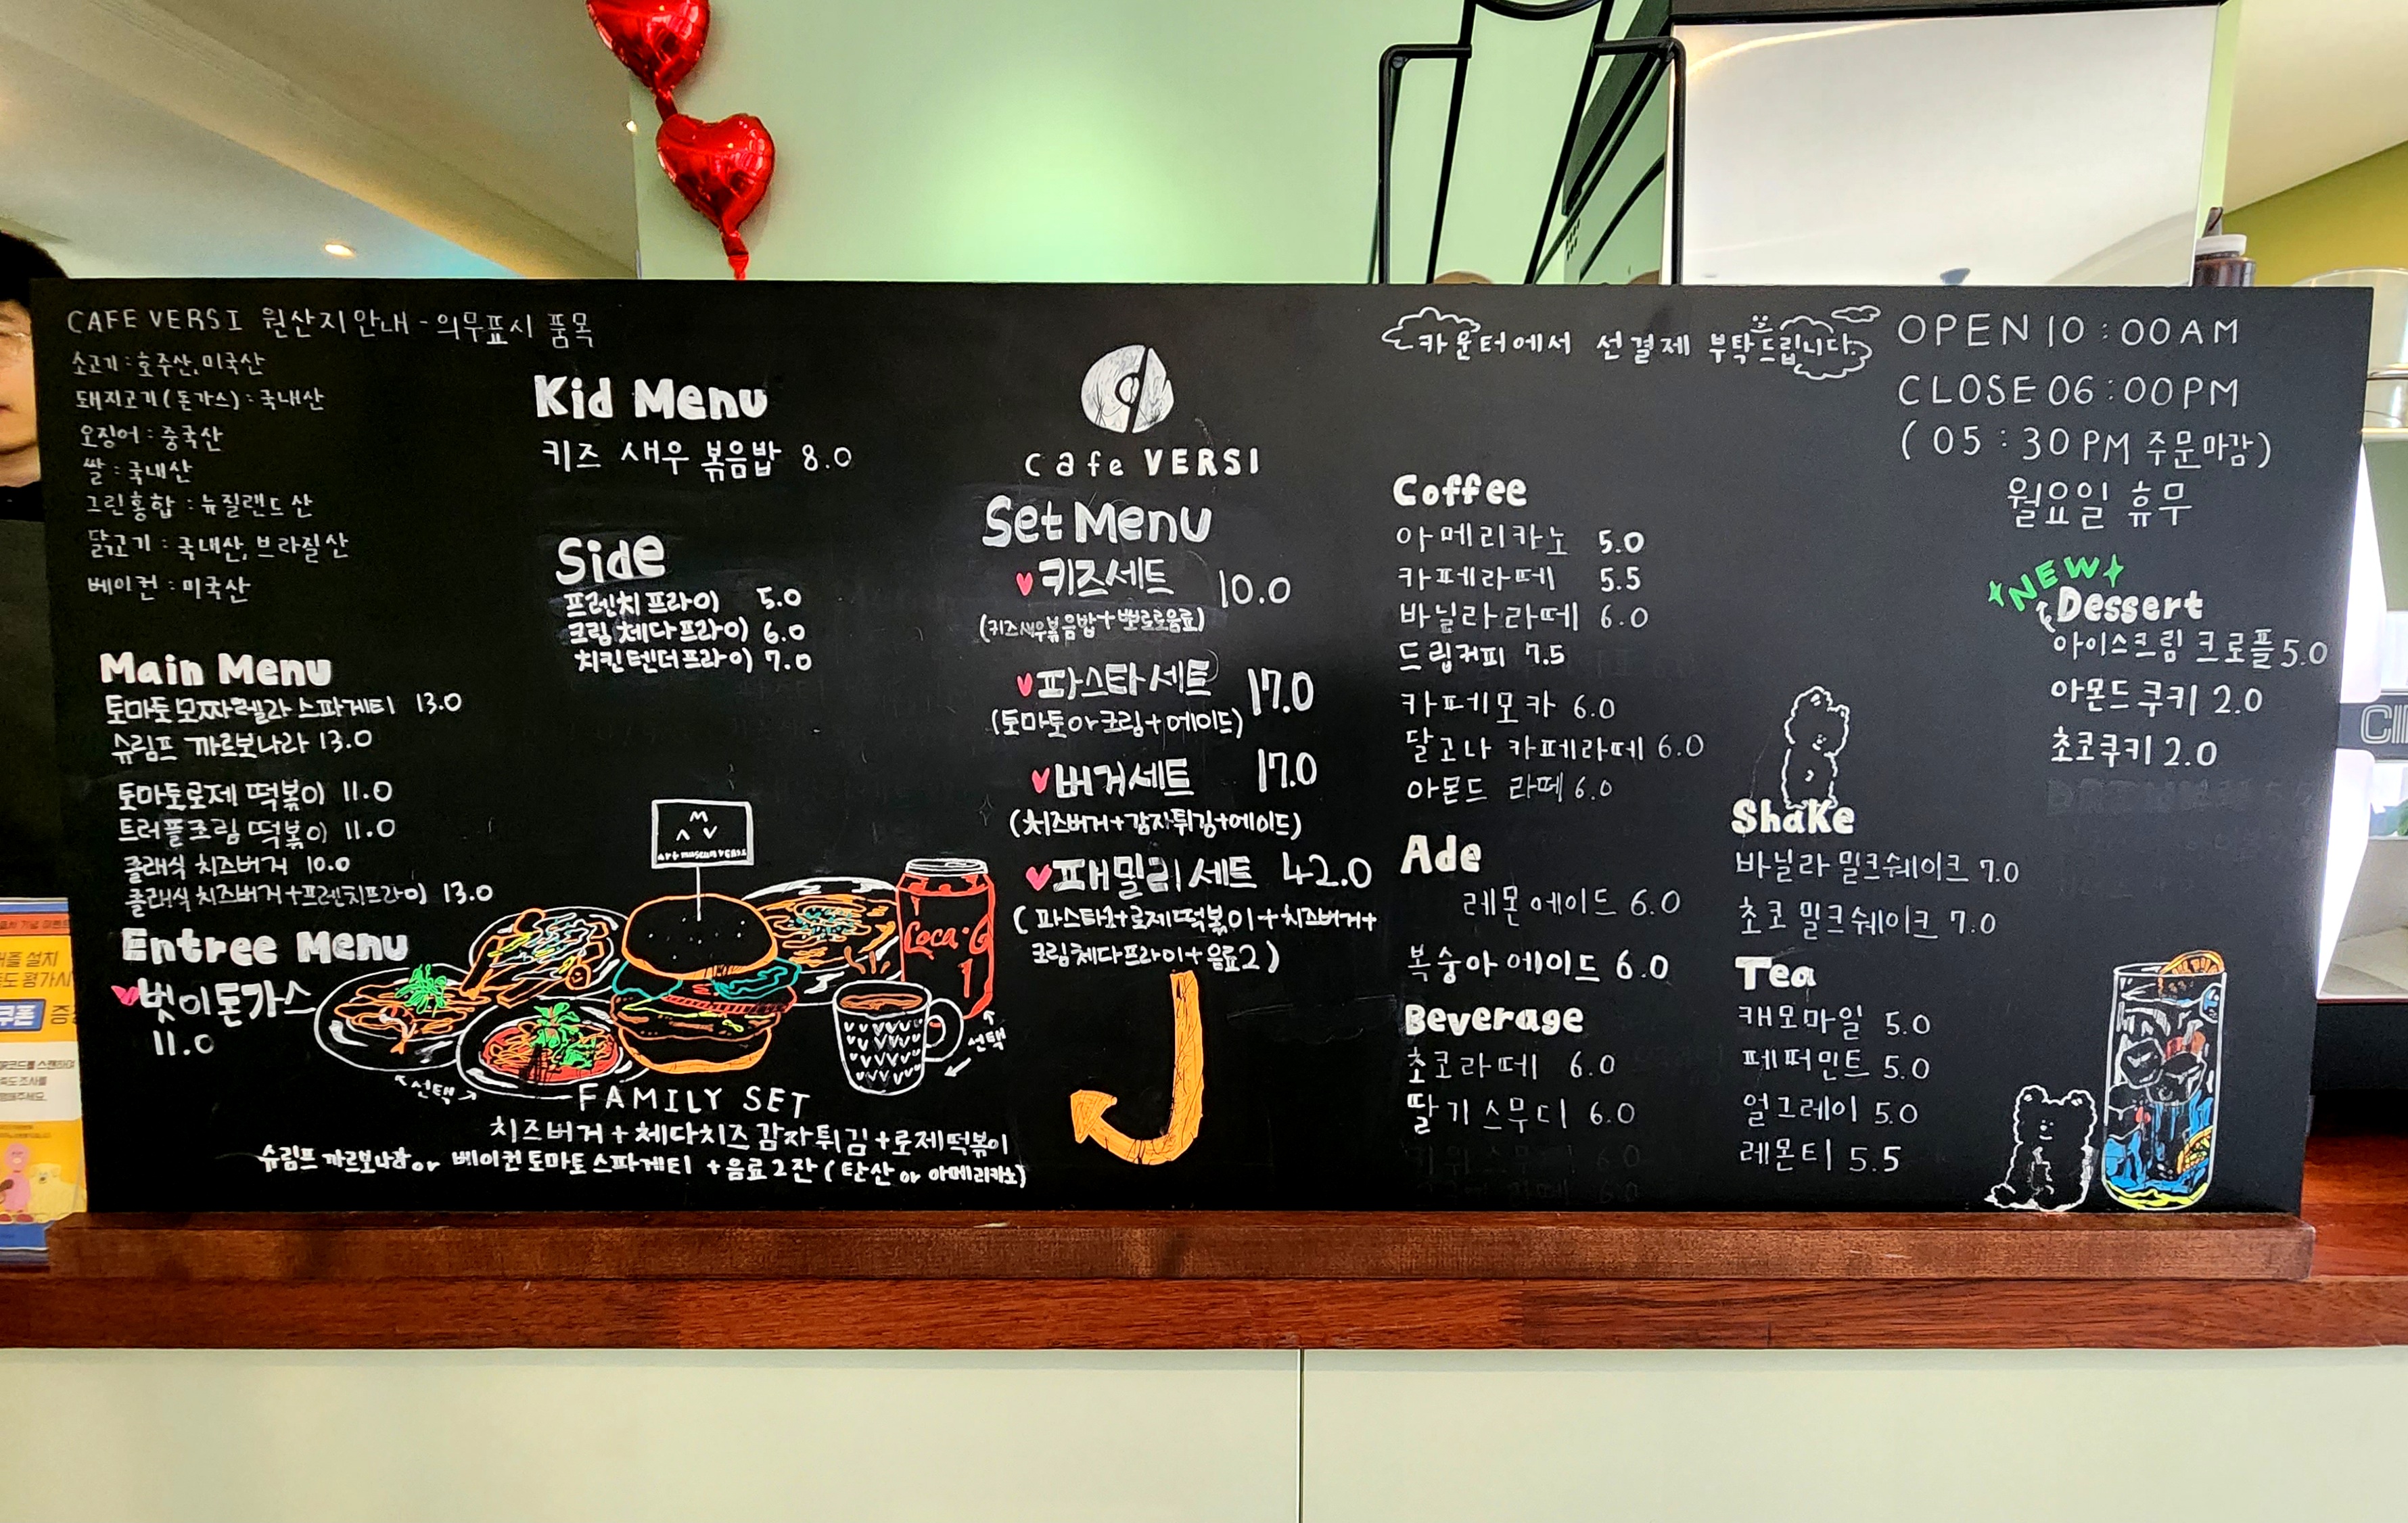 CAFE VERSI 원산지안내 - 의무표시 품목
소고기 : 호주산, 미국산
돼지고기 (돈가스) : 국내산
오징어 : 중국산
쌀 : 국내산
그린홍합 : 뉴질랜드산
닭고기 : 국내산, 브라질산
베이컨 : 미국산
Main Menu
토마토 모짜렐라 스파게티 13.0
슈림프 까르보나라 13.0
토마토로제 떡볶이 11.0
트러플크림 떡볶이 11.0
클래식 치즈버거 10.0
클래식 치즈버거+프렌치프라이 13.0
Entree Menu
벗이돈가스
11.0
Kid Menu
키즈 새우 볶음밥 8.0
Side
프렌치 프라이 5.0
크림 체다 프라이 6.0
치킨텐더프라이 7.0
art museum VERSI
Coca-C
선택
선택
FAMILY SET
치즈버거 + 체다치즈 감자튀김 + 로제떡볶이
슈림프 까르보나라 or 베이컨 토마토 스파게티 + 음료 2잔 ( 탄산 or 아메리카노)
Cafe VERSI
Set Menu
키즈세트 10.0
(키즈새우볶음밥+뽀로로음료)
파스타 세트 17.0
(토마토 or 크림 + 에이드)
버거세트 17.0
(치즈버거+감자튀김+에이드)
패밀리 세트 42.0
( 파스타1+로제떡볶이+치즈버거+
크림체다프라이+음료2 )
카운터에서 선결제 부탁드립니다.
Coffee
아메리카노 5.0
카페라떼 5.5
바닐라라떼 6.0
드립커피 7.5
카페모카 6.0
달고나 카페라떼 6.0
아몬드 라떼 6.0
Ade
레몬에이드 6.0
복숭아 에이드 6.0
Beverage
초코라떼 6.0
딸기 스무디 6.0
Shake
바닐라 밀크쉐이크 7.0
초코 밀크쉐이크 7.0
Tea
캐모마일 5.0
페퍼민트 5.0
얼그레이 5.0
레몬티 5.5
OPEN 10 : 00 AM
CLOSE 06 : 00 PM
( 05 : 30 PM 주문마감)
월요일 휴무
NEW
Dessert
아이스크림 크로플 5.0
아몬드 쿠키 2.0
초코쿠키 2.0